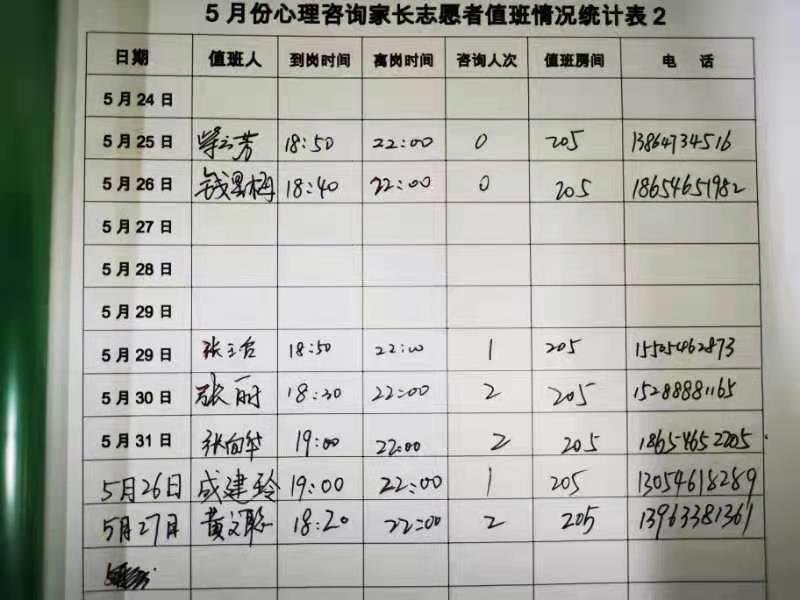 5月份心理咨询家长志愿者值班情况统计表2
日期 值班人 到岗时间 离岗时间 咨询人次 值班房间 电 话
5月24日
5月25日 芳 18:50 22:00 0 205 13864734516
5月26日 钱 梅 18:40 22:00 0 205 18654651982
5月27日
5月28日
5月29日
5月29日 张 18:50 22:00 1 205 15505462873
5月30日 张丽 18:30 22:00 2 205 15288881165
5月31日 张向华 19:00 22:00 2 205 18654652205
5月26日 成建玲 19:00 22:00 1 205 13054618289
5月27日 黄文聪 18:20 22:00 2 205 13963381361